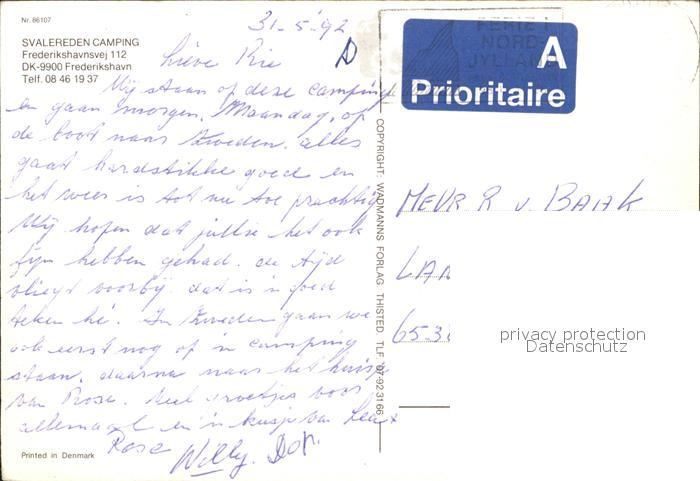 Nr. 86107
SVALEREDEN CAMPING
Frederikshavnsvej 112
DK-9900 Frederikshavn
Telf. 08 46 19 37
31-5-'92
Lieve Rie
Wij staan op deze camping
en gaan morgen, Maandag, op
de boot naar Zweden. alles
gaat hardstikke goed en
het weer is tot nu toe prachtig
Wij hopen dat jullie het ook
fijn hebben gehad. de tijd
vliegt voorbij dat is 'n goed
teken hé. In Zweden gaan we
ook eerst nog op 'n camping
staan, daarna naar het huisje
van Rose. Veel groetjes voor
allemaal en 'n kusje van Lea x
Rose Willy. Don.
Printed in Denmark
COPYRIGHT: WADMANNS FORLAG THISTED TLF. 07-92 31 66
FERIE I
NORD
JYLLAND
A
Prioritaire
MEVR R v. BAAK
LAN
653
privacy protection
Datenschutz